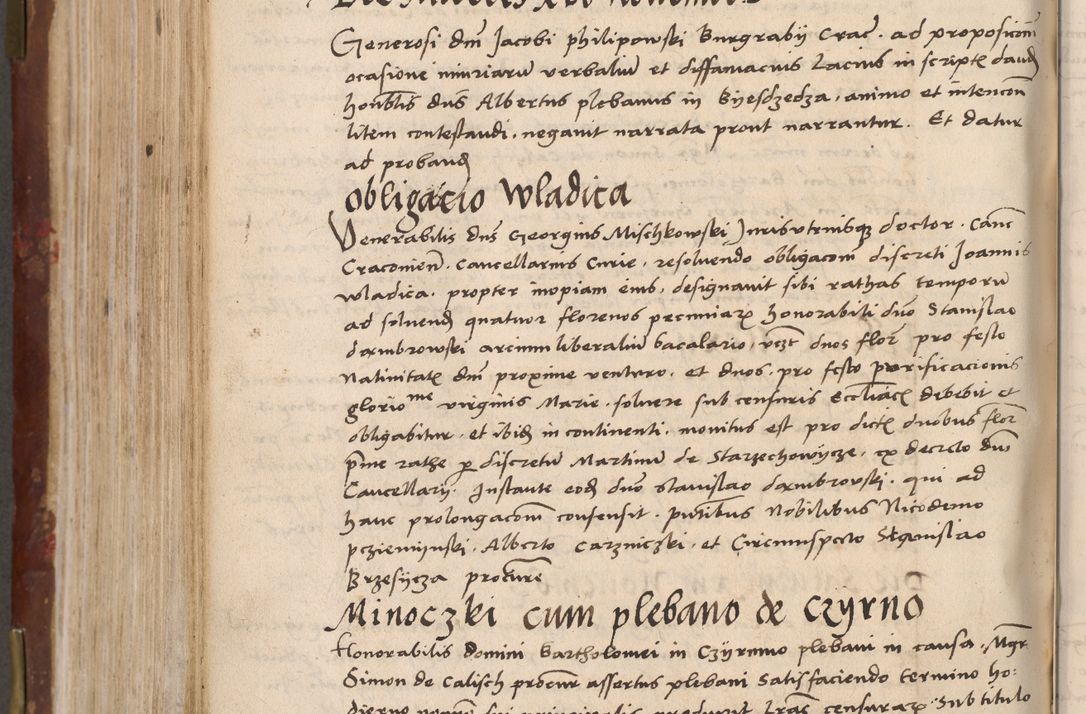 Generosi dnī Jacobi philipowski Burgrabij Crac. ad proposicōnē
ocasione iniuriarū verbaliū et diffamacīus lacius in scriptꝭ dand̄
honbīlis dnūs Albertus plebanus in Byesdzedza, animo et intencōn
litem contestandi, negauit narrata prout narrantur. Et datur
ad proband̄
obligacio wladica
Venerabilis dnūs Georgius Mischkowski Jurisvtriusqꝫ doctor. Canc̄
Craconien̄. Cancellarius Curie, resoluendo obligacōm discreti Joannis
wladica, propter inopiam eius, designauit sibi rathas temporū
ad soluend̄ quatuor florenos pecuniarꝝ honorabili dnō Stanislao
dambrowski arcium liberaliū bacalario, vcꝫt duos flor̄ pro festo
Natiuitatꝭ dnī proxime venturo, et duos, pro festo purificacionis
glorioᵐᵉ virginis Marie, soluere sub censuris eccliācꝭ debebit et
obligabitur, et ibid̄ in continenti, monitus est pro dictꝭ duobus flor̄
prīme rathe ꝑ discretū Martinū de Starzechowycze, ex decreto dnī
Cancellarij. Instante eod̄ dnō stanislao dambrovski, qui ad
hanc prolongacōm consensit. pn̄tibus Nobilibus Nicodemo
pczieniynski, Alberto Carzniczki, et Circumspecto Stanislao
Brzesycza procurē
Minoczki cum plebano de Czyrnō
Honorabilis domini Bartholomei in Czyrnno plebani in causa, Mgr̄
Simon de Calisch procur̄ assertus plebani satisfaciendo termino ho: